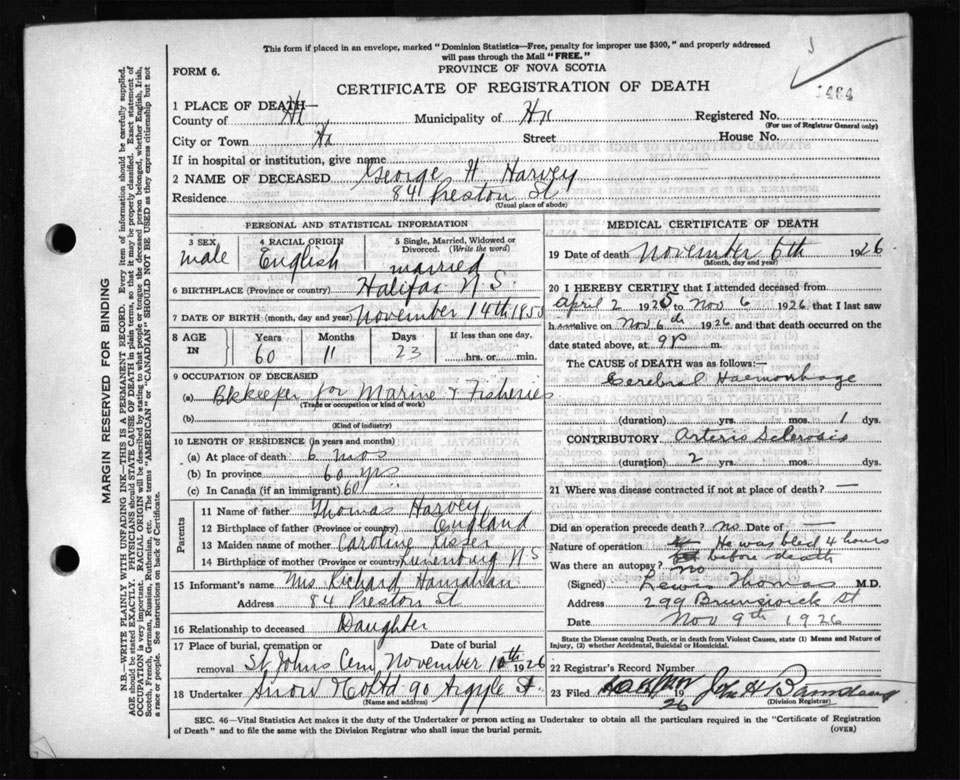 This form if placed in an envelope, marked "Dominion Statistics—Free, penalty for improper use $300," and properly addressed
will pass through the Mail "FREE."
PROVINCE OF NOVA SCOTIA
FORM 6.
CERTIFICATE OF REGISTRATION OF DEATH
1464
1 PLACE OF DEATH—
County of Hx Municipality of Hx Registered No.
(For use of Registrar General only)
City or Town Hx Street House No.
If in hospital or institution, give name
2 NAME OF DECEASED George H. Harvey
Residence 84 Preston St
(Usual place of abode)
PERSONAL AND STATISTICAL INFORMATION
3 SEX 4 RACIAL ORIGIN 5 Single, Married, Widowed or Divorced. (Write the word)
male English married
6 BIRTHPLACE (Province or country) Halifax N S.
7 DATE OF BIRTH (month, day and year) November 14th 185
8 AGE IN Years Months Days If less than one day,
60 11 23 hrs. or min.
9 OCCUPATION OF DECEASED
(a) Bkkeeper for Marine & Fisheries
(Trade or occupation or kind of work)
(b)
(Kind of industry)
10 LENGTH OF RESIDENCE (in years and months)
(a) At place of death 6 mos
(b) In province 60 yrs
(c) In Canada (if an immigrant) 60
Parents
11 Name of father Thomas Harvey
12 Birthplace of father (Province or country) England
13 Maiden name of mother Caroline Risser
14 Birthplace of mother (Province or country) Lunenburg N S
15 Informant's name Mrs. Richard Hanrahan
Address 84 Preston St
16 Relationship to deceased Daughter
17 Place of burial, cremation or removal St Johns Cem Date of burial November 10th 1926
18 Undertaker Snow & Co Ltd 90 Argyle St.
(Name and address)
MEDICAL CERTIFICATE OF DEATH
19 Date of death November 6th 1926
(Month, day and year)
20 I HEREBY CERTIFY that I attended deceased from
April 2 1925 to Nov 6 1926 that I last saw
him alive on Nov 6th 1926 and that death occurred on the
date stated above, at 9P m.
The CAUSE OF DEATH was as follows:—
Cerebral Haemorrhage
(duration) yrs. mos. 1 dys.
CONTRIBUTORY Arterio Sclerosis
(duration) 2 yrs. mos. dys.
21 Where was disease contracted if not at place of death? —
Did an operation precede death? no Date of —
Nature of operation He was bled 4 hours
before death
Was there an autopsy? no
(Signed) Lewis Thomas M.D.
Address 299 Brunswick St
Date Nov 9th 1926
State the Disease causing Death, or in death from Violent Causes, state (1) Means and Nature of
Injury, (2) whether Accidental, Suicidal or Homicidal.
22 Registrar's Record Number
23 Filed 1926
(Division Registrar)
SEC. 46—Vital Statistics Act makes it the duty of the Undertaker or person acting as Undertaker to obtain all the particulars required in the "Certificate of Registration
of Death" and to file the same with the Division Registrar who shall issue the burial permit.
(OVER)
MARGIN RESERVED FOR BINDING
N.B.—WRITE PLAINLY WITH UNFADING INK—THIS IS A PERMANENT RECORD. Every item of information should be carefully supplied.
AGE should be stated EXACTLY. PHYSICIANS should STATE CAUSE OF DEATH in plain terms, so that it may be properly classified. Exact statement of
OCCUPATION is very important. RACIAL ORIGIN will be described by stating to what people or tongue the deceased person belonged, whether English, Irish,
Scotch, French, German, Russian, Ruthenian, etc. The terms "AMERICAN" or "CANADIAN" SHOULD NOT BE USED as they express citizenship but not
a race or people. See instructions on back of Certificate.